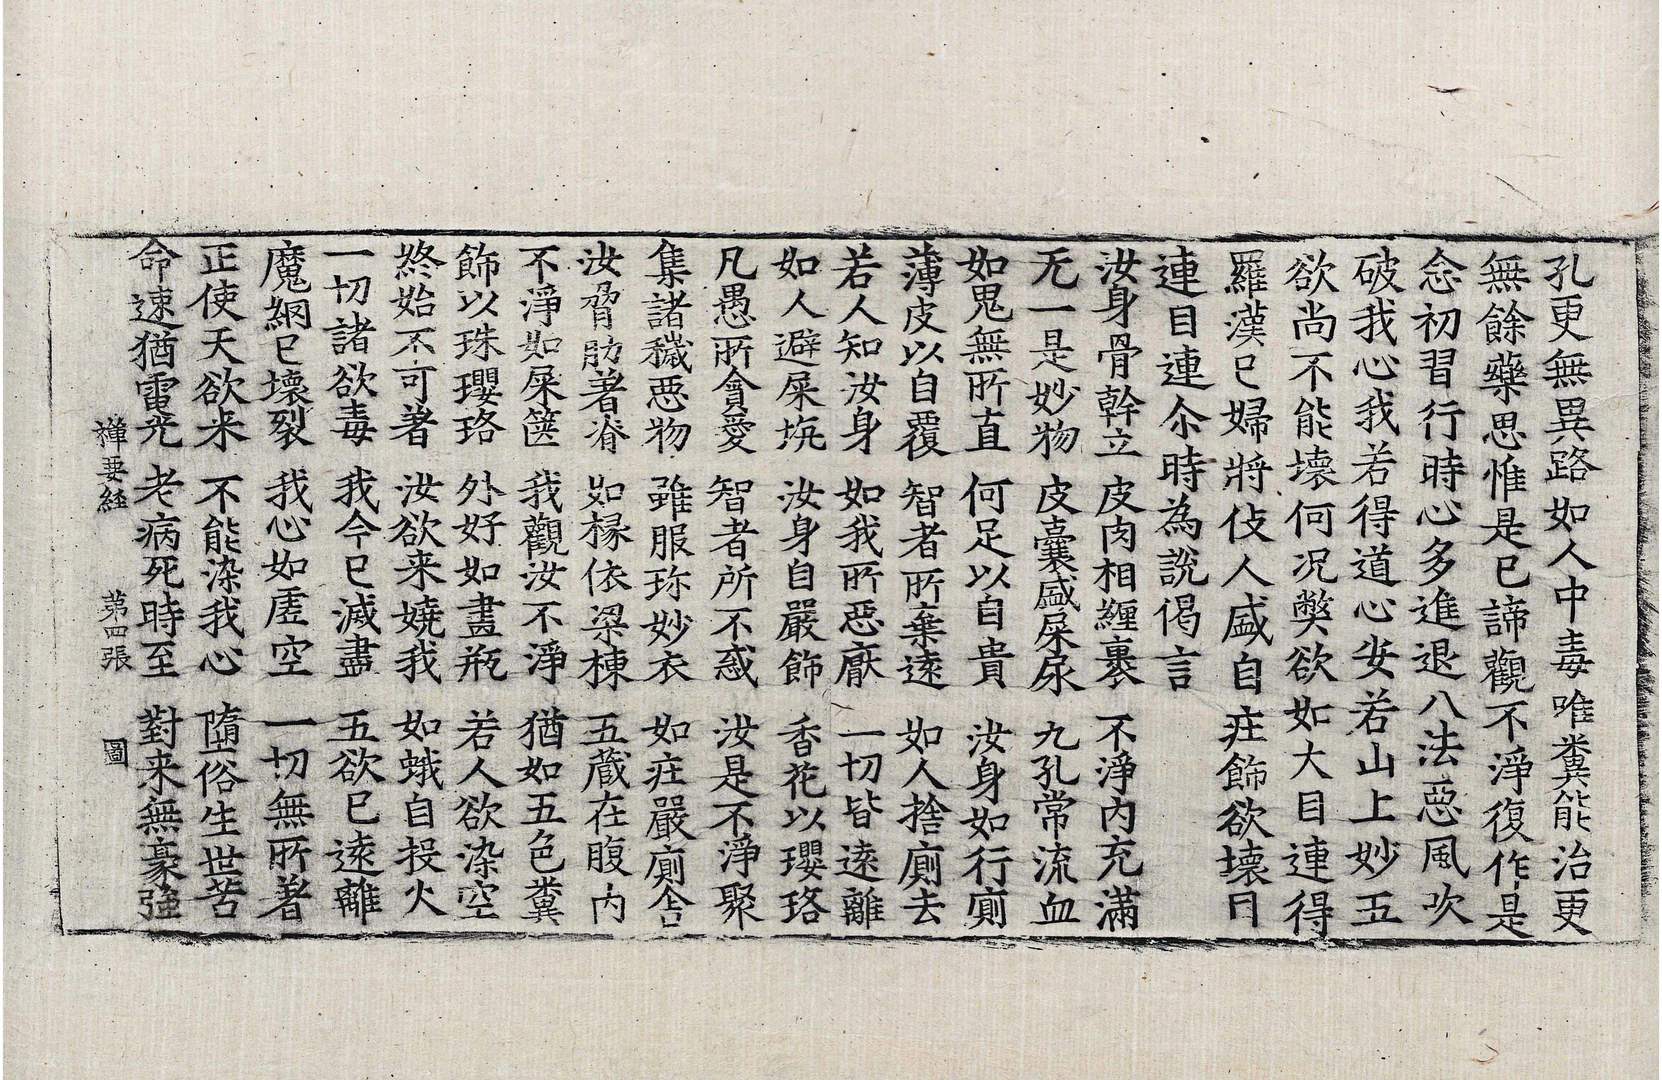 孔更無異路如人中毒唯糞能治更
無餘藥思惟是已諦觀不淨復作是
念初習行時心多進退八法惡風吹
破我心我若得道心安若山上妙五
欲尚不能壞何况弊欲如大目連得
羅漢已婦將伎人盛自庄飾欲壞目
連目連尒時為說偈言
汝身骨幹立 皮肉相纏裹 不淨內充滿
无一是妙物 皮囊盛屎尿 九孔常流血
如鬼無所直 何足以自貴 汝身如行廁
薄皮以自覆 智者所棄遠 如人捨廁去
若人知汝身 如我所惡厭 一切皆遠離
如人避屎坑 汝身自嚴飾 香花以瓔珞
凡愚所會愛 智者所不惑 汝是不淨聚
集諸穢惡物 雖服珎妙衣 如庄嚴廁舍
汝脅肋著脊 如椽依梁棟 五藏在腹內
不淨如屎篋 我觀汝不淨 猶如五色糞
飾以珠瓔珞 外好如畫瓶 若人欲染空
終始不可著 汝欲来嬈我 如蛾自投火
一切諸欲毒 我今已滅盡 五欲已遠離
魔網已壞裂 我心如虛空 一切無所著
正使天欲来 不能染我心 墮俗生世苦
命速猶電光 老病死時至 對来無豪強
禅要經 第四張 圖